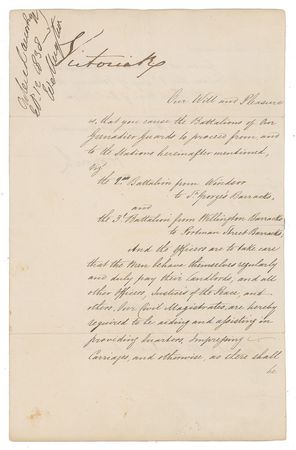 Victoria R
Our Will and Pleasure
is, that you cause the Battalions of Our
Grenadier Guards to proceed from and
to the Stations hereinafter mentioned,
Viz
the 2nd Battalion from Windsor
to St. George's Barracks,
and
the 3d Battalion from Wellington Barracks
to Portman Street Barracks,
And the Officers are to take care
that the Men behave themselves regularly
and duly pay their Landlords, and all
other Officers, Justices of the Peace, and
others, Our Civil Magistrates, are hereby
required to be aiding and assisting in
providing Quarters, Impressing
Carriages, and otherwise, as there shall
be